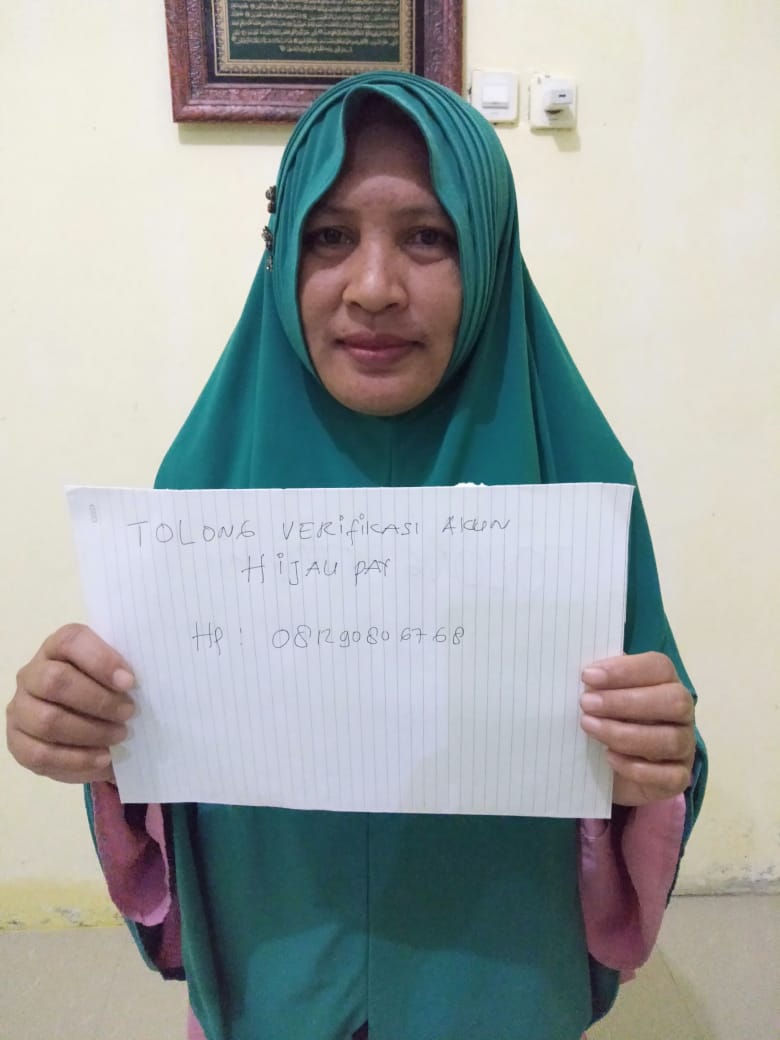 TOLONG VERIFIKASI AKUN
HIJAU PAY
HP : 081290806768